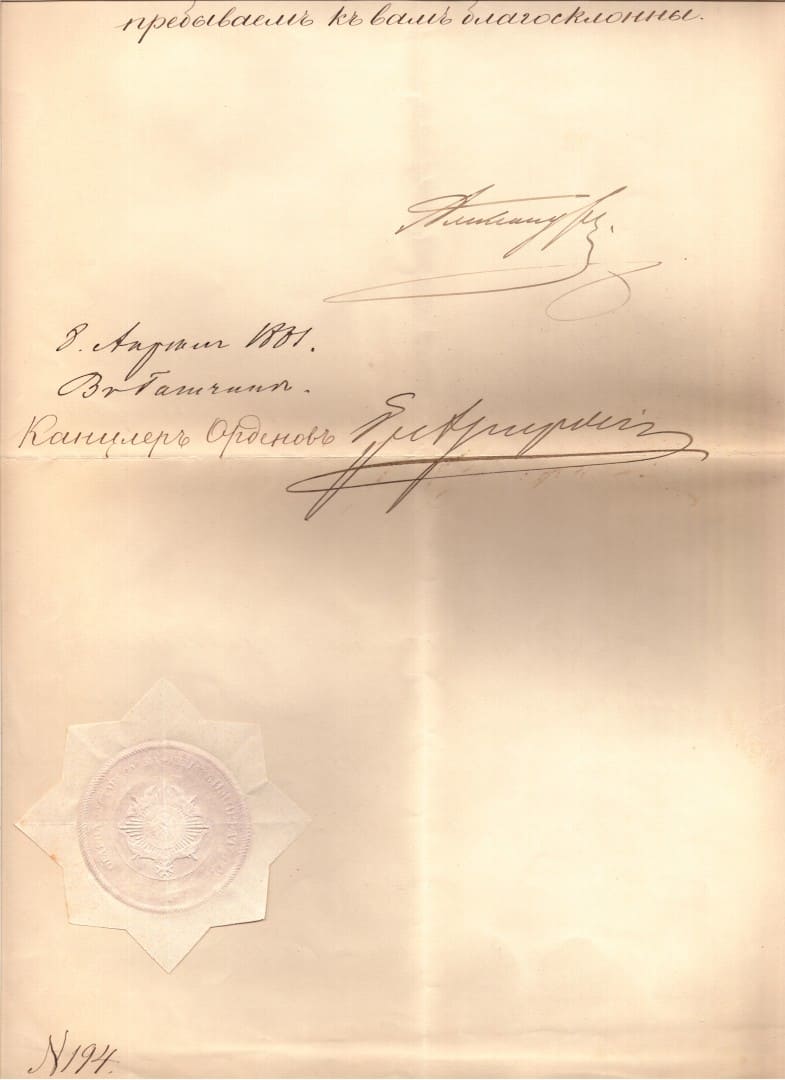 пребываемъ къ вамъ благосклонны.
Александръ.
8. Апрѣля 1881.
Въ Гатчинѣ.
Канцлеръ Орденовъ
N194.